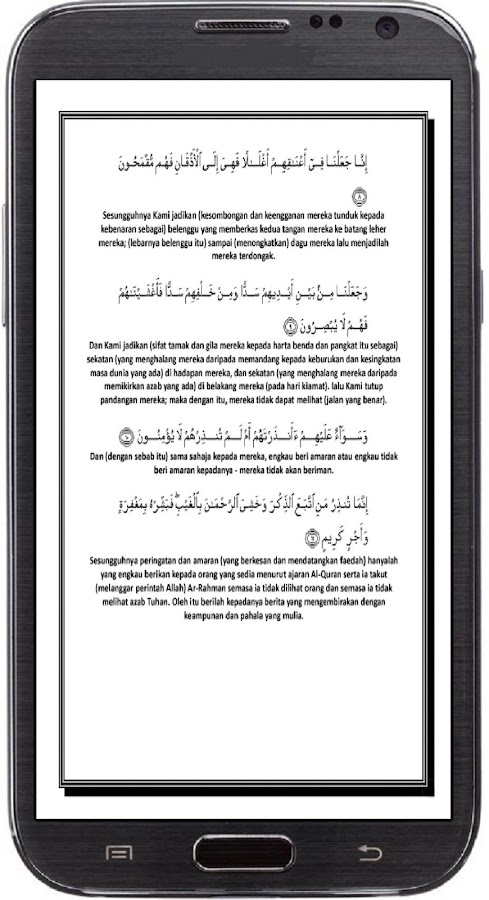 إِنَّا جَعَلْنَا فِىٓ أَعْنَٰقِهِمْ أَغْلَٰلًا فَهِىَ إِلَى ٱلْأَذْقَانِ فَهُم مُّقْمَحُونَ
٨
Sesungguhnya Kami jadikan (kesombongan dan keengganan mereka tunduk kepada
kebenaran sebagai) belenggu yang memberkas kedua tangan mereka ke batang leher
mereka; (lebarnya belenggu itu) sampai (menongkatkan) dagu mereka lalu menjadilah
mereka terdongak.
وَجَعَلْنَا مِنۢ بَيْنِ أَيْدِيهِمْ سَدًّا وَمِنْ خَلْفِهِمْ سَدًّا فَأَغْشَيْنَٰهُمْ
فَهُمْ لَا يُبْصِرُونَ ٩
Dan Kami jadikan (sifat tamak dan gila mereka kepada harta benda dan pangkat itu sebagai)
sekatan (yang menghalang mereka daripada memandang kepada keburukan dan kesingkatan
masa dunia yang ada) di hadapan mereka, dan sekatan (yang menghalang mereka daripada
memikirkan azab yang ada) di belakang mereka (pada hari kiamat). lalu Kami tutup
pandangan mereka; maka dengan itu, mereka tidak dapat melihat (jalan yang benar).
وَسَوَآءٌ عَلَيْهِمْ ءَأَنذَرْتَهُمْ أَمْ لَمْ تُنذِرْهُمْ لَا يُؤْمِنُونَ ١٠
Dan (dengan sebab itu) sama sahaja kepada mereka, engkau beri amaran atau engkau tidak
beri amaran kepadanya - mereka tidak akan beriman.
إِنَّمَا تُنذِرُ مَنِ ٱتَّبَعَ ٱلذِّكْرَ وَخَشِىَ ٱلرَّحْمَٰنَ بِٱلْغَيْبِ ۖ فَبَشِّرْهُ بِمَغْفِرَةٍ
وَأَجْرٍ كَرِيمٍ ١١
Sesungguhnya peringatan dan amaran (yang berkesan dan mendatangkan faedah) hanyalah
yang engkau berikan kepada orang yang sedia menurut ajaran Al-Quran serta ia takut
(melanggar perintah Allah) Ar-Rahman semasa ia tidak dilihat orang dan semasa ia tidak
melihat azab Tuhan. Oleh itu berilah kepadanya berita yang mengembirakan dengan
keampunan dan pahala yang mulia.